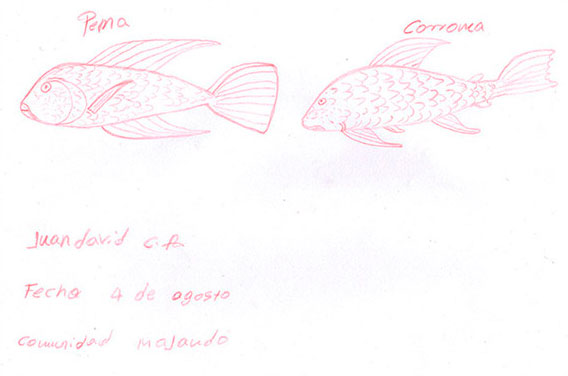 Pema
Corroma
Juan david C.
Fecha 4 de agosto
comunidad majando